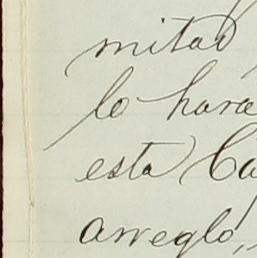 mitad
lo hara
esta Ca
arreglo,